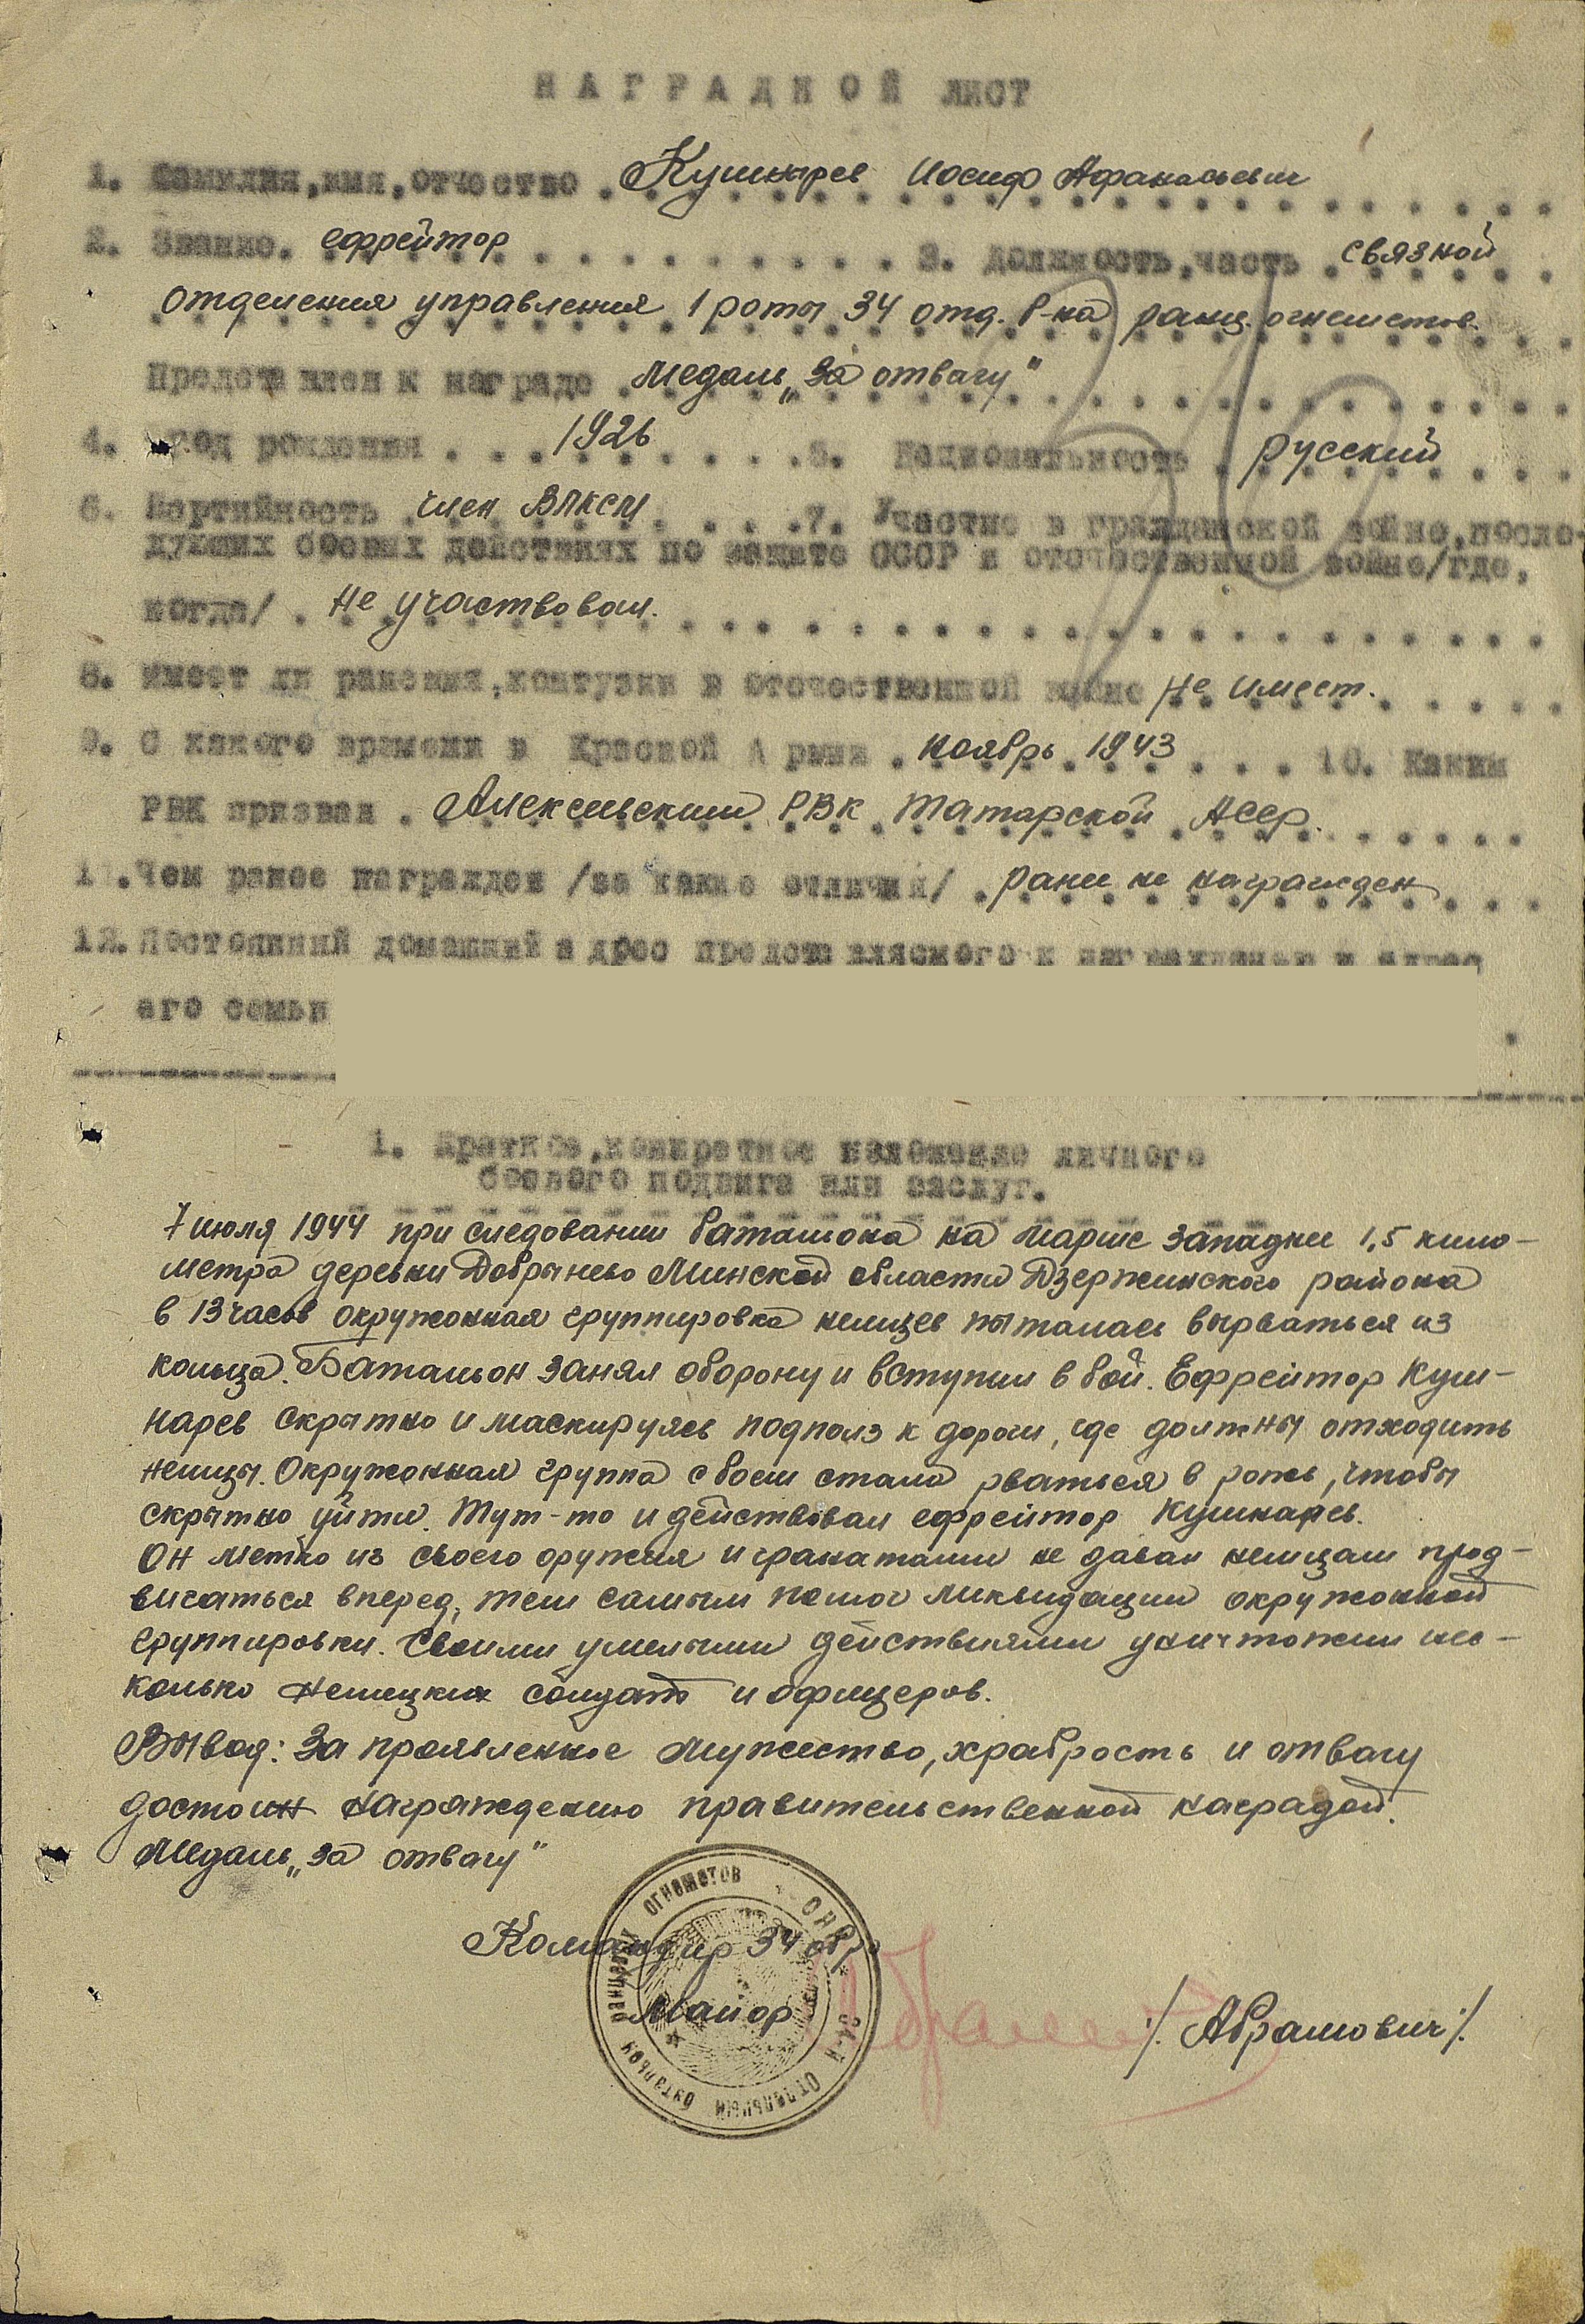 НАГРАДНОЙ ЛИСТ
1. Фамилия,имя,отчество . Кушнырев Иосиф Афанасьевич
2. Звание. ефрейтор 3. Должность,часть . связной
отделения управления 1 роты 34 отд. б-на ранц. огнеметов.
Представлен к награде . Медаль „За отвагу"
4. Год рождения . . . 1926 5. Национальность . русский
6. Партийность член ВЛКСМ 7. Участие в гражданской войне,после-
дующих боевых действиях по защите СССР и отечественной войне/где,
когда/ . Не участвовал.
8. Имеет ли ранения,контузии в отечественной войне Не имеет.
9. С какого времени в Красной Армии . ноябрь 1943 10. Каким
РВК призван . Алексеевский РВК Татарской АССР.
11.Чем ранее награжден /за какие отличия/ . ранее не награжден
12.Постоянный домашний адрес представляемого к награждению и адрес
его семьи
1. Краткое,конкретное изложение личного
боевого подвига или заслуг.
7 июля 1944 при следовании батальона на марше западнее 1,5 кило-
метра деревни Добрынево Минской области Дзержинского района
в 13 часов окружонная группировка немцев пыталась вырваться из
кольца. Батальон занял оборону и вступил в бой. Ефрейтор Куш-
нарев скрытно и маскируясь подполз к дороги, где должны отходить
немцы. Окружонная группа с боем стала рваться в рожь, чтобы
скрытно уйти. Тут-то и действовал ефрейтор Кушнарев.
Он метко из своего оружия и гранатами не давал немцам прод-
вигаться вперед, тем самым помог ликвидации окружонной
группировки. Своими умелыми действиями уничтожил нес-
колько немецких солдат и офицеров.
Вывод: За проявленное мужество, храбрость и отвагу
достоин награждению правительственной наградой.
Медаль „За отвагу"
Командир 34 обро
Майор /. Абрамович /.
34-й Отдельный батальон ранцевых огнеметов